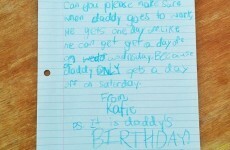 Can you please make sure
when daddy goes to work,
he gets one day off like
he can't get get a day off
on wednesday Because
Daddy ONLY gets a day
off on Saturday.
From
Katie
PS. It is daddy's
BIRTHDAY